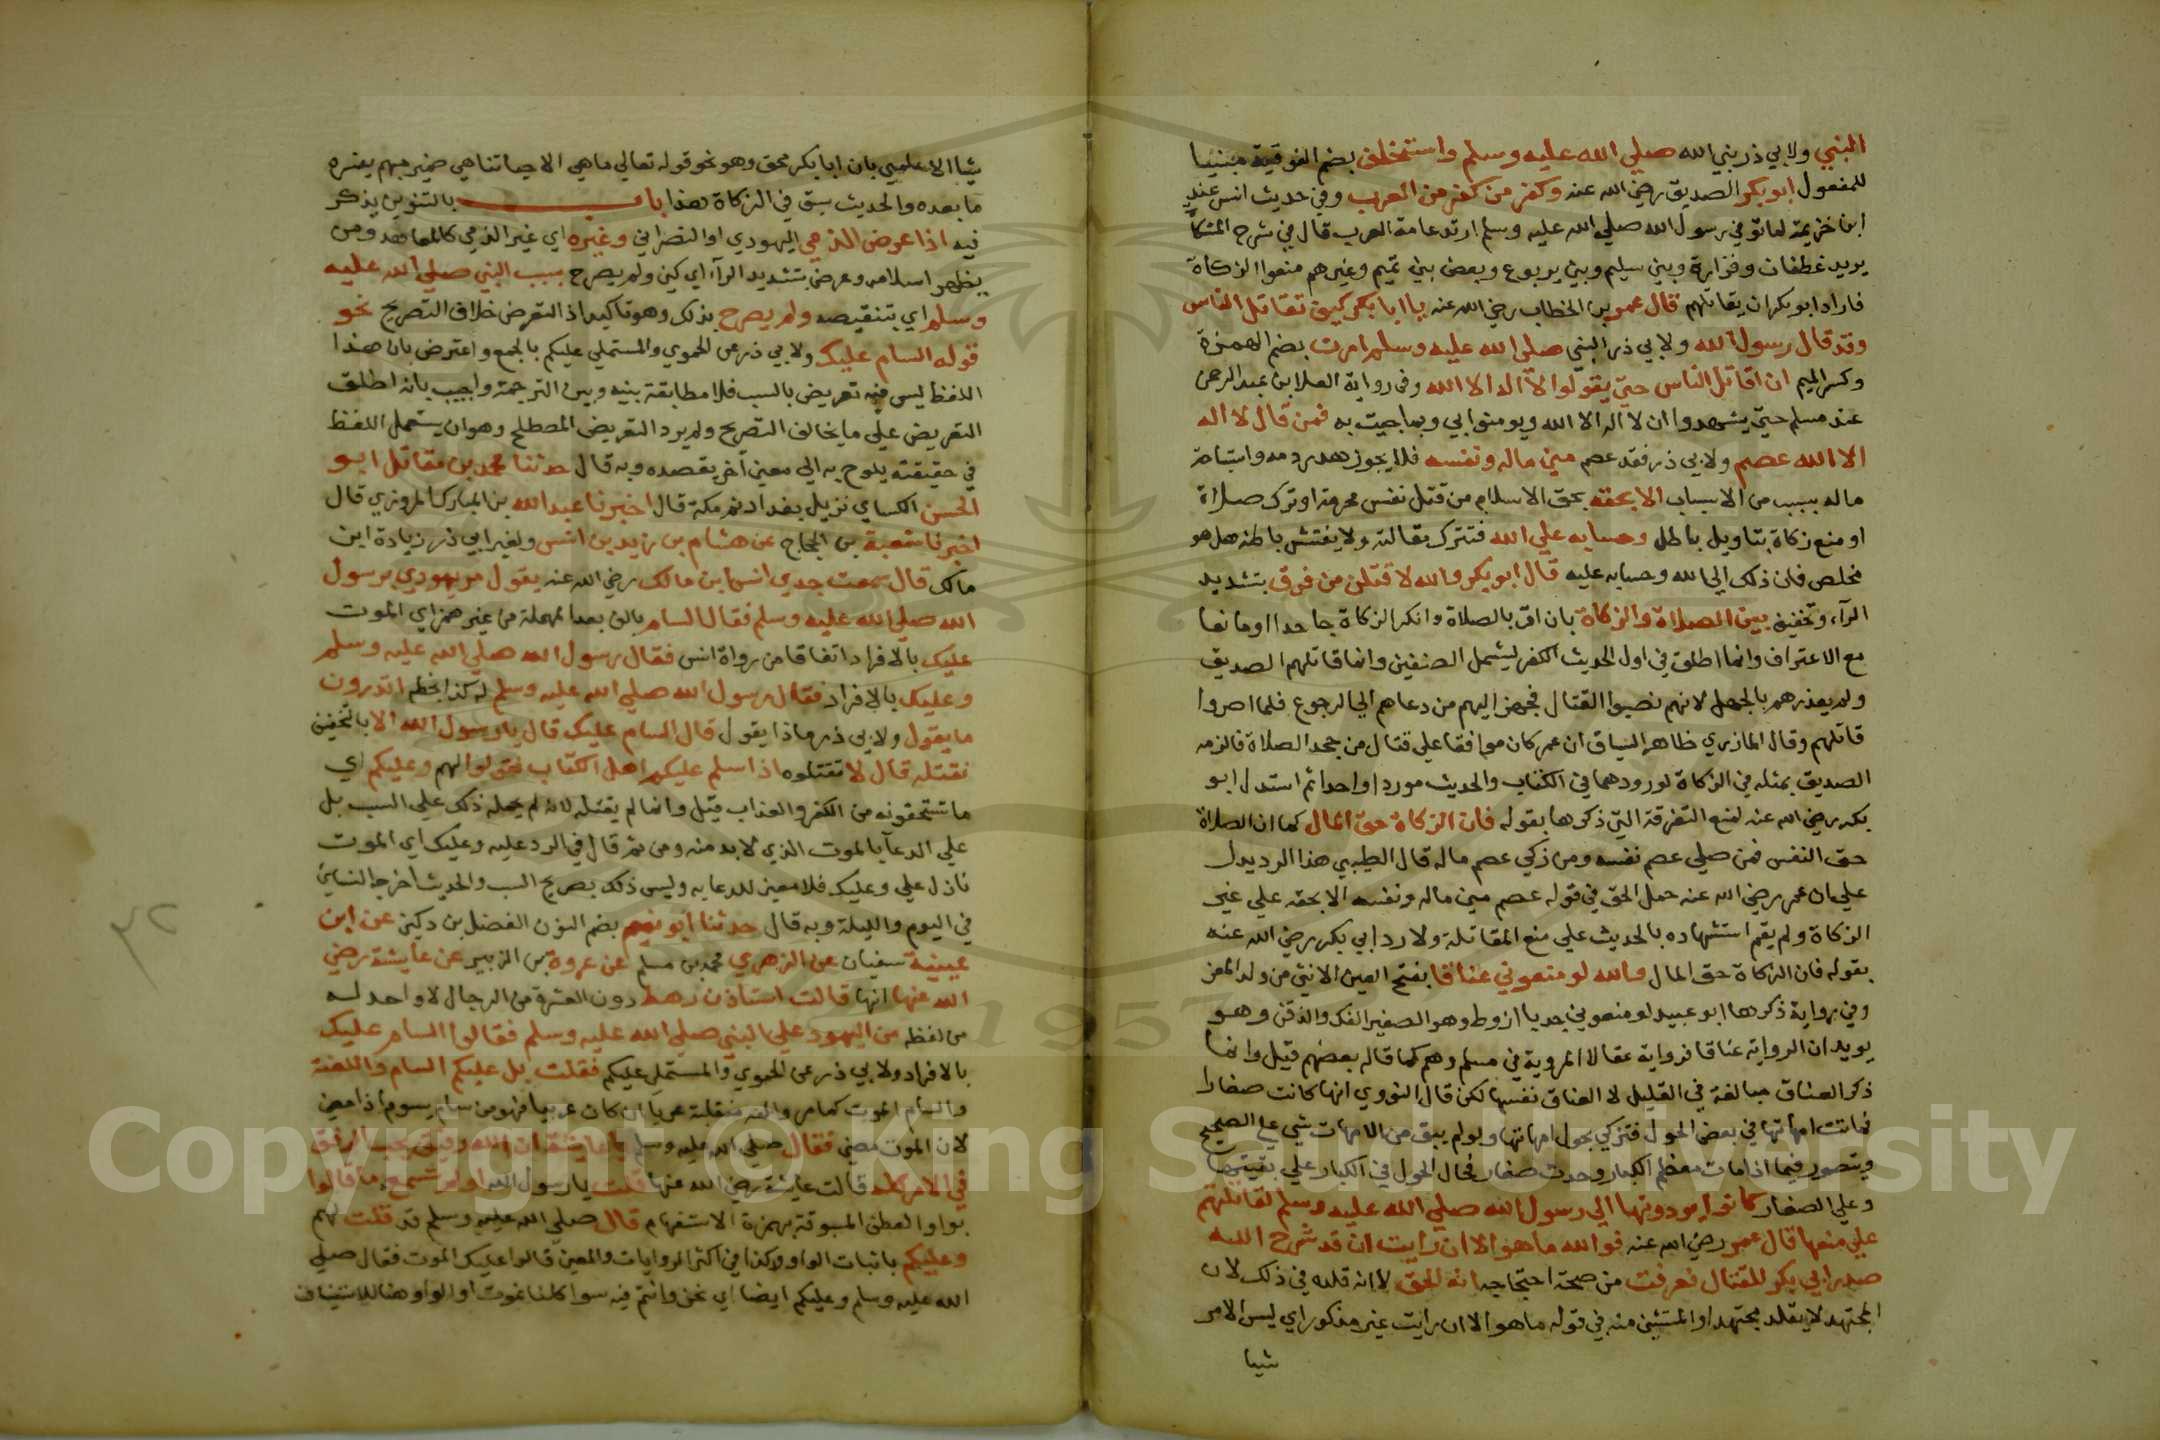 النبي ولابي ذر نبي الله صلي الله عليه وسلم واستخلف بضم الفوقية مبنيا
للمفعول ابو بكر الصديق رضي الله عنه وكفر من كفر من العرب وفي حديث انس عند
ابن خزيمة لما توفي رسول الله صلي الله عليه وسلم ارتد عامة العرب قال في شرح المشكاة
يريد غطفان وفزارة وبني سليم وبني يربوع وبعض بني تميم وغيرهم منعوا الزكاة
فاراد ابو بكر ان يقاتلهم قال عمر بن الخطاب رضي الله عنه يا ابا بكر كيف تقاتل الناس
وقد قال رسول الله ولابي ذر النبي صلي الله عليه وسلم امرت بضم الهمزة
وكسر الميم ان اقاتل الناس حتي يقولوا لا اله الا الله وفي رواية العلا بن عبد الرحمن
عند مسلم حتي يشهدوا ان لا اله الا الله ويومنوا بي وبما جيت به فمن قال لا اله
الا الله عصم ولابي ذر فقد عصم مني ماله ونفسه فلا يجوز هدر دمه واستباحة
ماله بسبب من الاسباب الا بحقه بحق الاسلام من قتل نفس محرمة او ترك صلاة
او منع زكاة بتاويل باطل وحسابه علي الله فتترك مقالته ولا يفتش باطنه هل هو
مخلص فان ذلك الي الله وحسابه عليه قال ابو بكر والله لا قتلن من فرق بتشديد
الرآء وتخفيف بين الصلاة والزكاة بان اقر بالصلاة وانكر الزكاة جاحدا او مانعا
مع الاعتراف وانما اطلق في اول الحديث الكفر ليشمل الصنفين وانما قاتلهم الصديق
ولم يعذرهم بالجهل لانهم نصبوا القتال فجهز اليهم من دعاهم الي الرجوع فلما اصروا
قاتلهم وقال المازري ظاهر السياق ان عمر كان موافقا علي قتال من جحد الصلاة فالزمه
الصديق بمثله في الزكاة لورودهما في الكتاب والحديث موردا واحدا ثم استدل ابو
بكر رضي الله عنه لمنع التفرقة التي ذكرها بقوله فان الزكاة حق المال كما ان الصلاة
حق النفس فمن صلي عصم نفسه ومن زكي عصم ماله قال الطيبي هذا الرد يدل
علي ان عمر رضي الله عنه حمل الحق في قوله عصم مني ماله ونفسه الا بحقه علي غير
الزكاة ولم يقم استشهاده بالحديث علي منع المقاتلة ولا رد ابي بكر رضي الله عنه
بقوله فان الزكاة حق المال والله لو منعوني عناقا بفتح العين الانثي من ولد المعز
وفي رواية ذكرها ابو عبيد لو منعوني جديا ازوط وهو الصغير الفك والذقن وهو
يويد ان الرواية عناقا فرواية عقالا المروية في مسلم وهم كما قاله بعضهم قيل وانما
ذكر العناق مبالغة في القليل لا العناق نفسها لكن قال النووي انها كانت صغارا
فماتت امهاتها في بعض الحول فتزكي بحول امهاتها ولو لم يبق من الامهات شي علي الصحيح
ويتصور فيما اذا مات معظم الكبار وحدث صغار فحال الحول في الكبار علي بقيتها
وعلي الصغار كانوا يودونها الي رسول الله صلي الله عليه وسلم لقاتلتهم
علي منعها قال عمر رضي الله عنه فوالله ما هو الا ان رايت ان قد شرح الله
صدر ابي بكر للقتال فعرفت من صحة احتجاجه انه الحق لا انه قلده في ذلك لان
المجتهد لا يقلد مجتهدا والمستثني منه في قوله ما هو الا ان رايت غير مذكور اي ليس الامر
شيا
شيا الا علمي بان ابا بكر محق وهو نحو قوله تعالي ما هي الا حياتنا هي ضمير مبهم يفسره
ما بعده والحديث سبق في الزكاة هذا باب بالتنوين يذكر
فيه اذا عرض الذمي اليهودي او النصراني وغيره اي غير الذمي كالمعاهد ومن
يظهر اسلامه وعرض بتشديد الرآء اي كني ولم يصرح بسب النبي صلي الله عليه
وسلم اي بتنقيصه ولم يصرح بذلك وهو تاكيد اذ التعريض خلاف التصريح نحو
قوله السام عليك ولابي ذر عن الحموي والمستملي عليكم بالجمع واعترض بان هذا
اللفظ ليس فيه تعريض بالسب فلا مطابقة بينه وبين الترجمة واجيب بانه اطلق
التعريض علي ما يخالف التصريح ولم يرد التعريض المصطلح وهو ان يستعمل اللفظ
في حقيقته يلوح به الي معين آخر يقصده وبه قال حدثنا محمد بن مقاتل ابو
الحسن الكسائي نزيل بغداد ثم مكة قال اخبرنا عبد الله بن المبارك المروزي قال
اخبرنا شعبة بن الحجاج عن هشام بن زيد بن انس ولغير ابي ذر زيادة ابن
مالك قال سمعت جدي انس ابن مالك رضي الله عنه يقول مر يهودي برسول
الله صلي الله عليه وسلم فقال السام بالف بعد المهملة من غير همز اي الموت
عليك بالافراد اتفاقا من رواة انس فقال رسول الله صلي الله عليه وسلم
وعليك بالافراد فقال رسول الله صلي الله عليه وسلم له كذا بخطه اتدرون
ما يقول ولابي ذر ماذا يقول قال السام عليك قال يا رسول الله الا بالتخفيف
نقتله قال لا تقتلوه اذا سلم عليكم اهل الكتاب فقولوا لهم وعليكم اي
ما تستحقونه من الكفر والعذاب قيل وانما لم يقتله لانه لم يحمله ذلك علي السب بل
علي الدعآ بالموت الذي لا بد منه ومن ثم قال في الرد عليه وعليك اي الموت
نازل علي وعليك فلا معني للدعا به وليس ذلك بصريح السب والحديث اخرجه النساي
في اليوم والليلة وبه قال حدثنا ابو نعيم بضم النون الفضل بن دكين عن ابن
عيينة سفيان عن الزهري محمد بن مسلم عن عروة بن الزبير عن عايشة رضي
الله عنها انها قالت استاذن رهط دون العشرة من الرجال لا واحد له
من لفظه من اليهود علي النبي صلي الله عليه وسلم فقالوا السام عليك
بالافراد ولابي ذر عن الحموي والمستملي عليكم فقلت بل عليكم السام واللعنة
والسام الموت كما مر والفه منقلبة عن يا ان كان عربيا فهو من سام يسوم اذا مضي
لان الموت مضي فقال صلي الله عليه وسلم يا عايشة ان الله رفيق يحب الرفق
في الامر كله قالت عايشة رضي الله عنها قلت يا رسول الله اولم تسمع ما قالوا
بواو العطف المسبوقة بهمزة الاستفهام قال صلي الله عليه وسلم قد قلت لهم
وعليكم باثبات الواو وكذا في اكثر الروايات والمعني قالوا عليك الموت فقال صلي
الله عليه وسلم وعليكم ايضا اي نحن وانتم فيه سوا كلنا نموت او الواو هنا للاستيناف
Copyright © King Saud University
1957